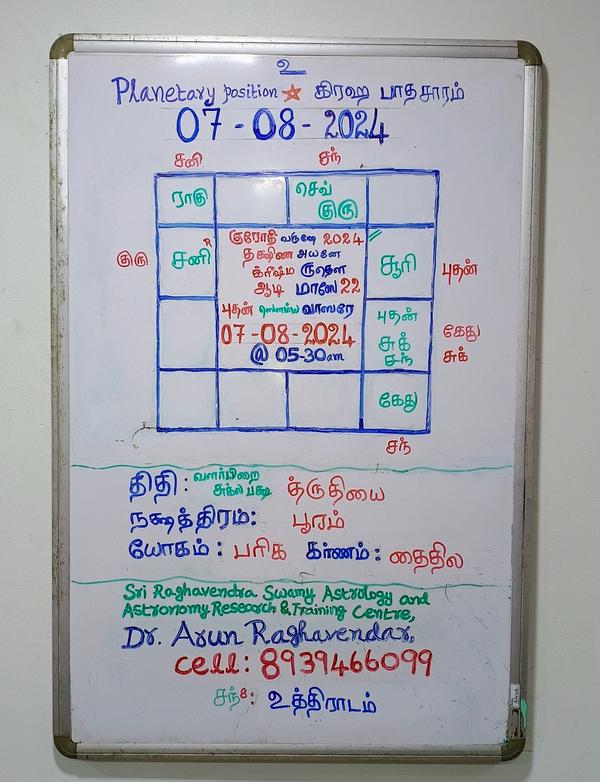 உ
Planetary position ☆ கிரஹ பாதசாரம்
07-08-2024
சனி சந்
ராகு செவ் குரு
குரு சனி R சூரி புதன்
குரோதி வருஷே 2024
தக்ஷிண அயனே
க்ரிஷ்ம ருதௌ
ஆடி மாஸே 22
புதன் ஸௌம்ய வாஸரே
07-08-2024
@ 05-30am
புதன்
சுக்
சந்
கேது
சுக்
கேது
சந்
திதி: வளர்பிறை சுக்ல பக்ஷ த்ருதியை
நக்ஷத்திரம்: பூரம்
யோகம்: பரிக கர்ணம்: தைதில
Sri Raghavendra Swamy Astrology and
Astronomy Research & Training Centre,
Dr. Arun Raghavendar,
cell: 8939466099
சந் 8: உத்திராடம்